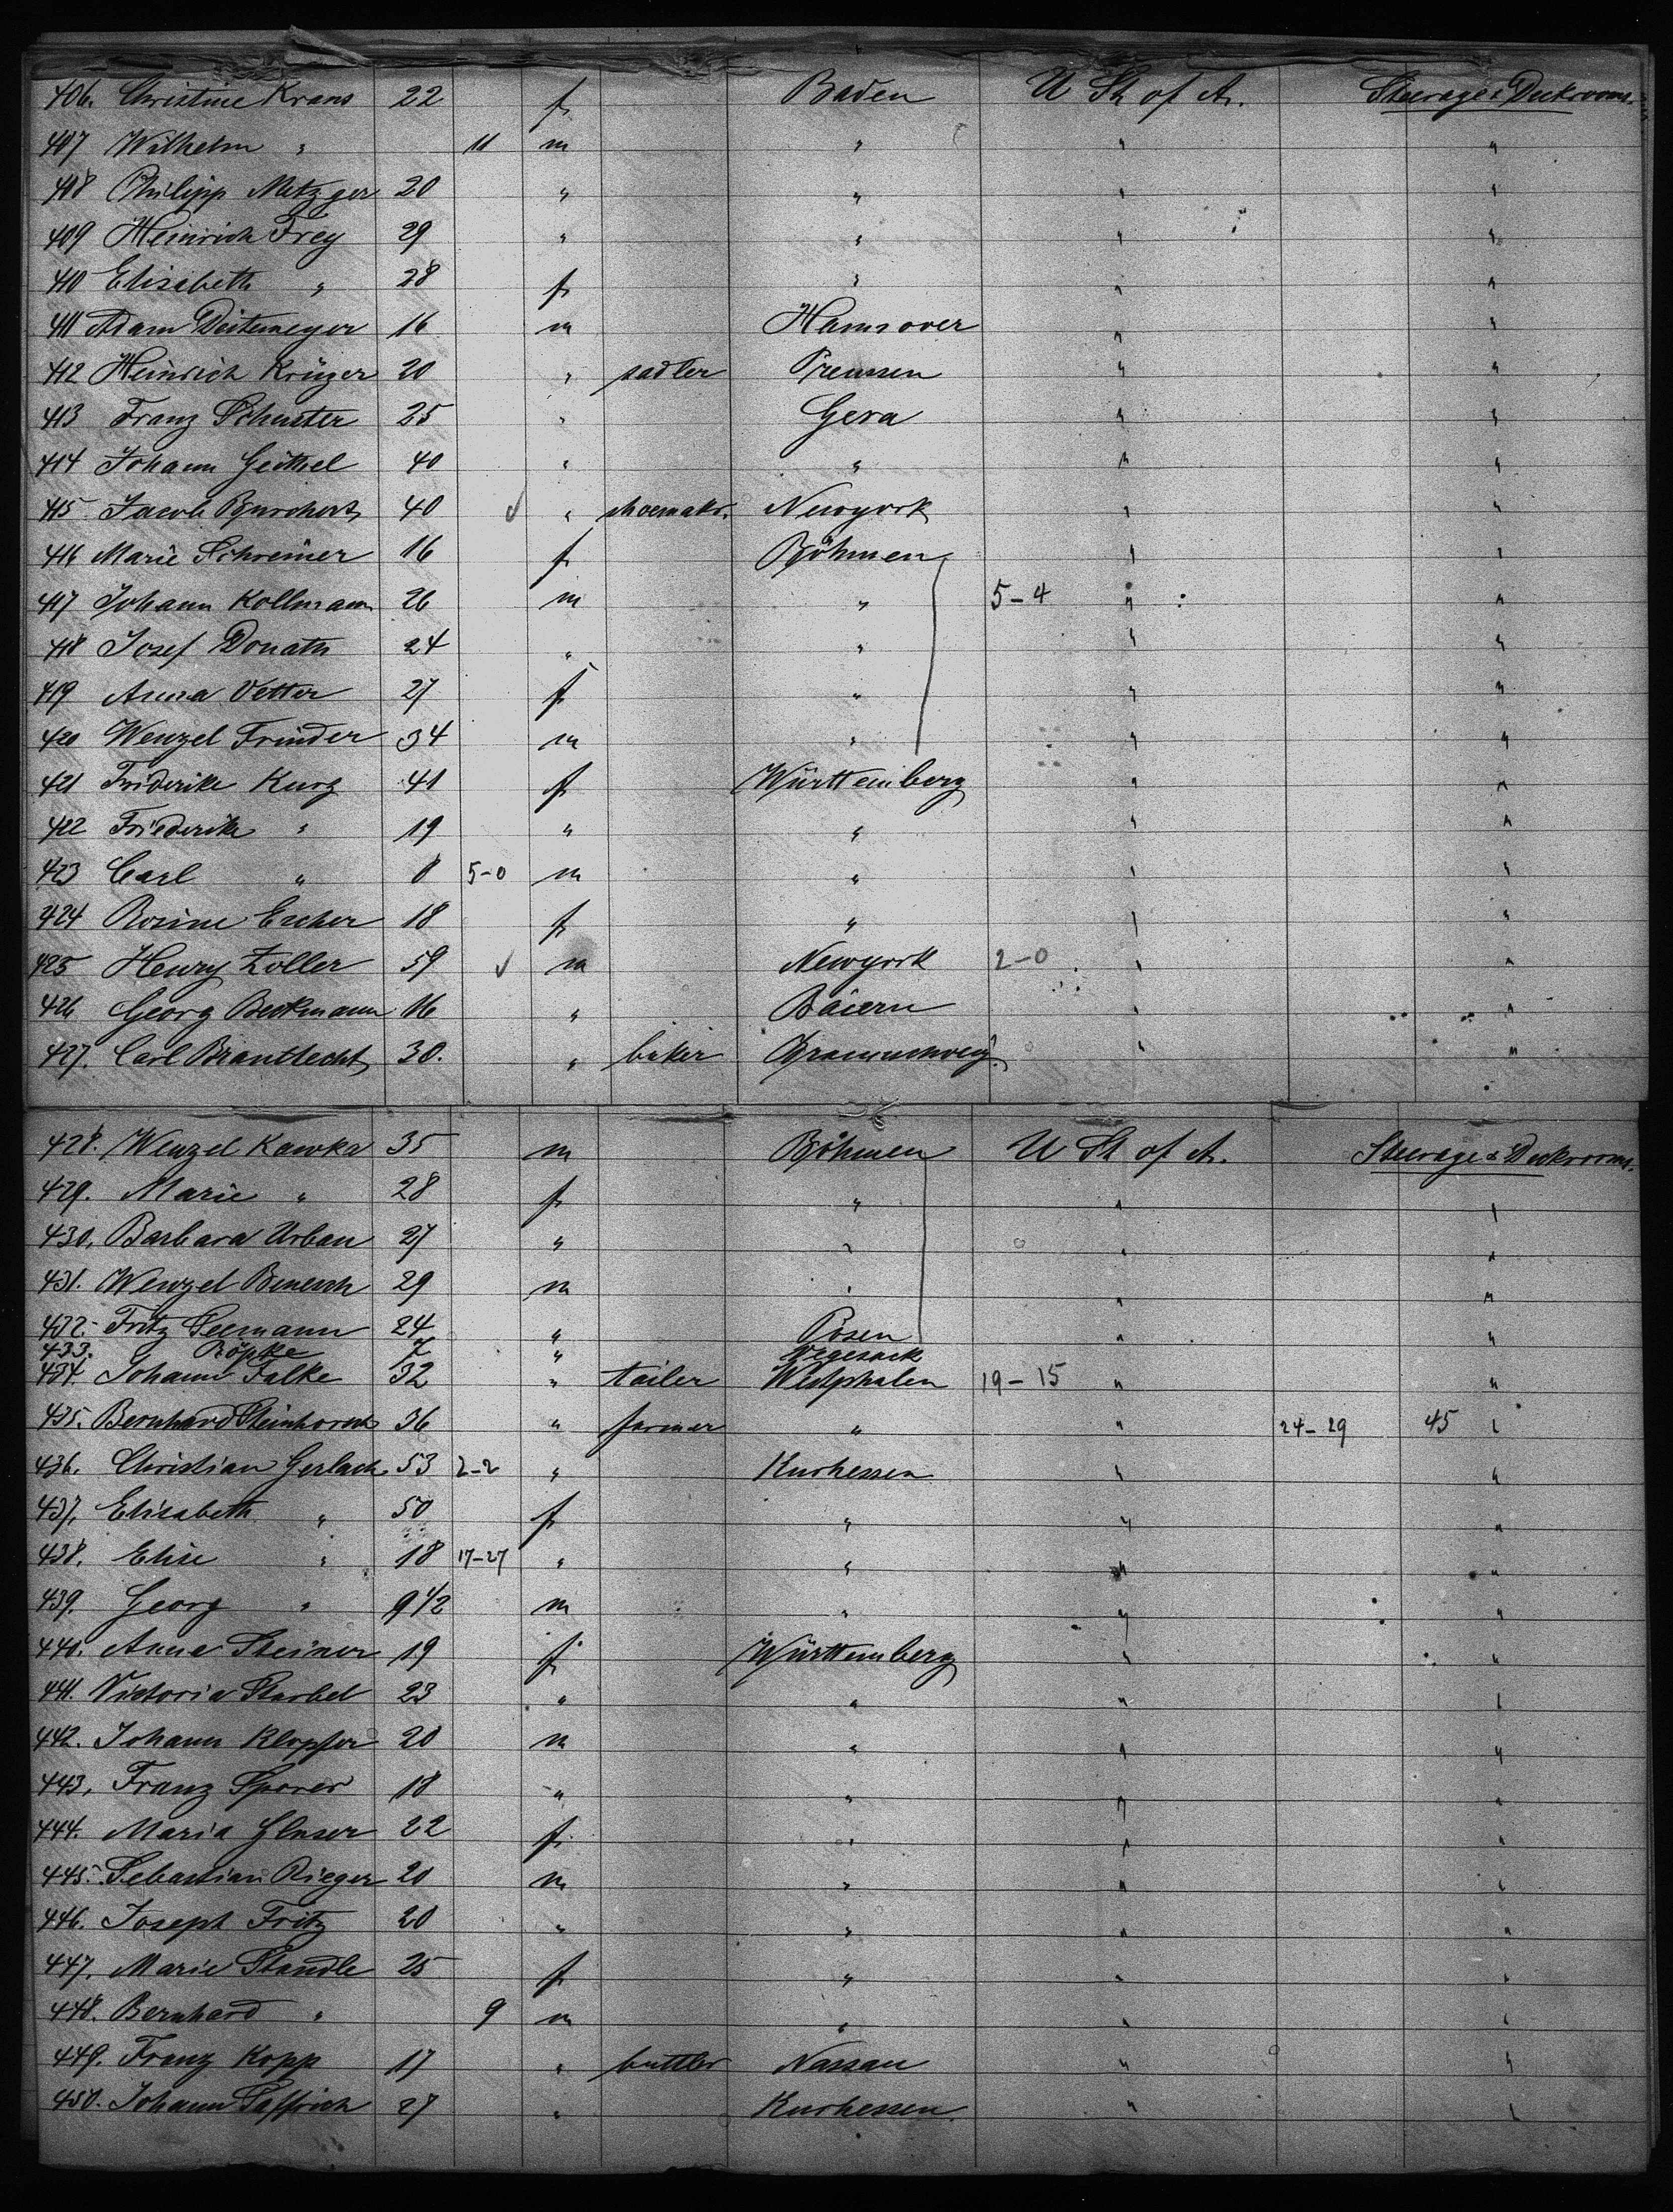 406. Christine Krans 22 f Baden U St of A. Steerage & Deckrooms.
407 Wilhelm " 11 m " " "
408 Philipp Metzger 20 " " " "
409 Heinrich Frey 29 " " " "
410 Elisabeth " 28 f " " "
411 Adam Deitemeyer 16 m Hannover " "
412 Heinrich Krüger 20 " sadler Preussen " "
413 Franz Schuster 25 " Gera " "
414 Johann 40 " " " "
415 Jacob Burchert 40 √ " shoemakr. Newyork " "
416 Marie Schreiner 16 f Böhmen " "
417 Johann Kollmann 26 m " 5-4 " "
418 Josef Donath 24 " " " "
419 Anna Vetter 27 f " " "
420 Wenzel Frinder 34 m " " "
421 Friderike Kurz 41 f Württemberg " "
422 Friederike " 19 " " " "
423 Carl " 8 5-0 m " " "
424 Rosine Escher 18 f " " "
425 Henry Zoller 59 √ m Newyork 2-0 " "
426 Georg Beckmann 16 " Baiern " "
427. Carl Brauttlecht 30. " baker Braunschweig. " "
428. Wenzel Kawka 35 m Böhmen U St of A. Steerage & Deckrooms.
429. Marie " 28 f " " "
430. Barbara Urban 27 " " " "
431. Wenzel Benesch 29 m " " "
432. Fritz Seemann 24 " Posen " "
433. Röpke 7 " Vegesack
434. Johann Falke 32 " tailer Westphalen 19-15 " "
435. Bernhard Steinhorch 36 " farmer " " 24-29 45 "
436. Christian Gerlach 53 2-2 " Kurhessen " "
437. Elisabeth " 50 f " " "
438. Elise " 18 17-27 " " " "
439. Georg " 9 1/2 m " " "
440. Anna Steiner 19 f Württemberg " "
441. Victoria Starbel 23 " " " "
442. Johann Klopfer 20 m " " "
443. Franz Sporer 18 " " " "
444. Maria Glaser 22 f " " "
445. Sebastian Rieger 20 m " " "
446. Joseph Fritz 20 " " " "
447. Marie Standle 25 f " " "
448. Bernhard " 9 m " " "
449. Franz Kopp 17 " buttler Nassau " "
450. Johann Saffrich 27 " Kurhessen. " "